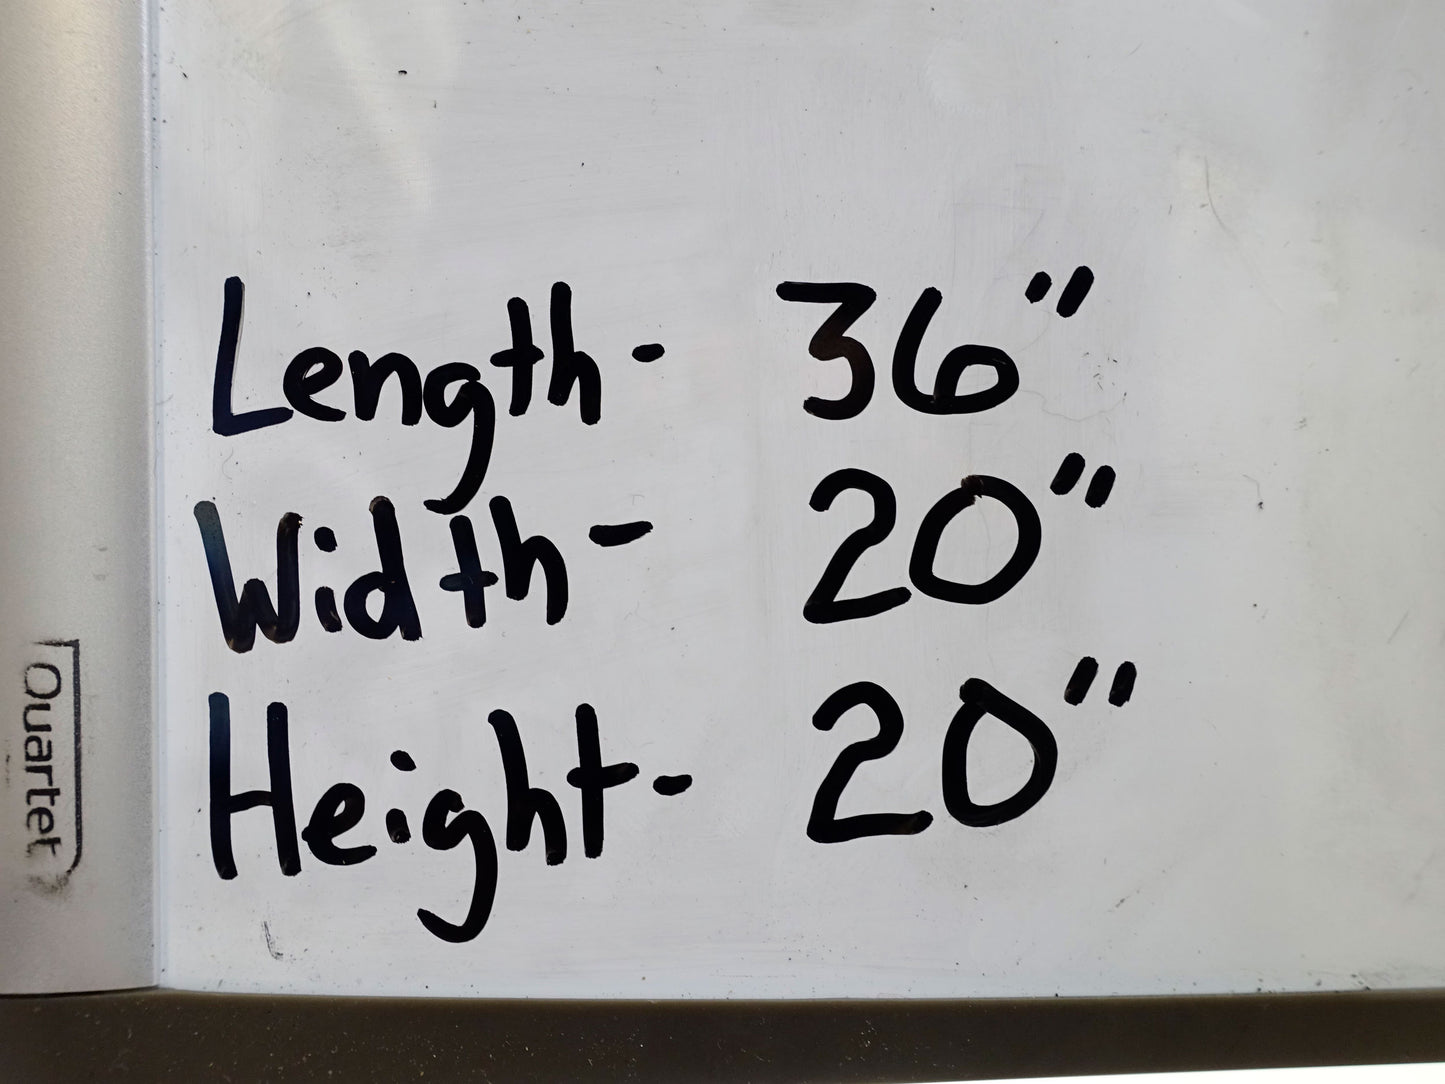 Length- 36"
Width- 20"
Height- 20"
Quartet